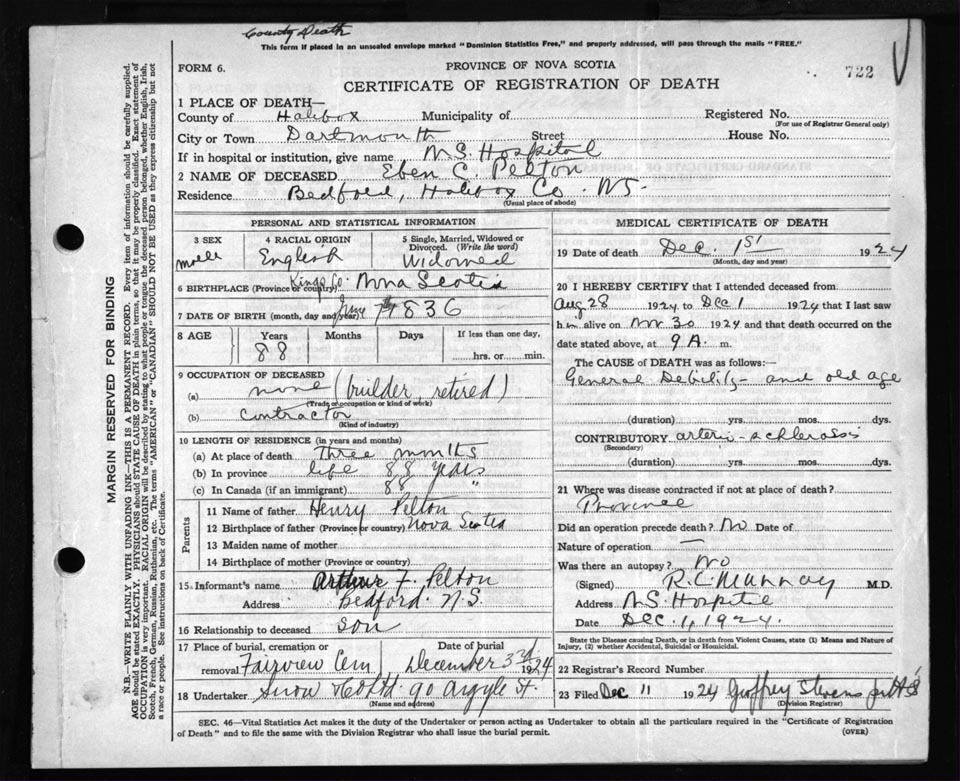 County Death
This form if placed in an unsealed envelope marked "Dominion Statistics Free," and properly addressed, will pass through the mails "FREE."
FORM 6.
PROVINCE OF NOVA SCOTIA
722
CERTIFICATE OF REGISTRATION OF DEATH
1 PLACE OF DEATH—
County of Halifax Municipality of Registered No.
(For use of Registrar General only)
City or Town Dartmouth Street House No.
If in hospital or institution, give name N.S. Hospital
2 NAME OF DECEASED Eben C. Pelton
Residence Bedford, Halifax Co. N.S.
(Usual place of abode)
PERSONAL AND STATISTICAL INFORMATION
3 SEX male
4 RACIAL ORIGIN English
5 Single, Married, Widowed or Divorced. (Write the word) Widowed
6 BIRTHPLACE (Province or country) Kings Co. Nova Scotia
7 DATE OF BIRTH (month, day and year) June 7th 1836
8 AGE Years Months Days If less than one day,
88 hrs. or min.
9 OCCUPATION OF DECEASED
(a) none (builder, retired)
(Trade, occupation or kind of work)
(b) contractor
(Kind of industry)
10 LENGTH OF RESIDENCE (in years and months)
(a) At place of death three months
(b) In province life 88 years
(c) In Canada (if an immigrant) 88 "
Parents
11 Name of father Henry Pelton
12 Birthplace of father (Province or country) Nova Scotia
13 Maiden name of mother
14 Birthplace of mother (Province or country)
15 Informant's name Arthur F. Pelton
Address Bedford N.S.
16 Relationship to deceased son
17 Place of burial, cremation or removal Fairview Cem
Date of burial December 3rd 1924
18 Undertaker Snow & Co Ltd. 90 Argyle St.
(Name and address)
MEDICAL CERTIFICATE OF DEATH
19 Date of death Dec 1st 1924
(Month, day and year)
20 I HEREBY CERTIFY that I attended deceased from
Aug 28 1924 to Dec 1 1924 that I last saw
him alive on Nov 30 1924 and that death occurred on the
date stated above, at 9 A. m.
The CAUSE of DEATH was as follows:—
General Debility and old age
(duration) yrs. mos. dys.
CONTRIBUTORY arterio-schlerosis
(Secondary)
(duration) yrs. mos. dys.
21 Where was disease contracted if not at place of death?
Province
Did an operation precede death? No Date of
Nature of operation —
Was there an autopsy? No
(Signed) R. C. M.D.
Address N.S. Hospital
Date Dec. 1, 1924.
State the Disease causing Death, or in death from Violent Causes, state (1) Means and Nature of Injury, (2) whether Accidental, Suicidal or Homicidal.
22 Registrar's Record Number
23 Filed Dec 11 1924 Geoffrey Stevens
(Division Registrar)
SEC. 46—Vital Statistics Act makes it the duty of the Undertaker or person acting as Undertaker to obtain all the particulars required in the "Certificate of Registration
of Death" and to file the same with the Division Registrar who shall issue the burial permit.
(OVER)
MARGIN RESERVED FOR BINDING
N.B.—WRITE PLAINLY WITH UNFADING INK—THIS IS A PERMANENT RECORD. Every item of information should be carefully supplied.
AGE should be stated EXACTLY. PHYSICIANS should STATE CAUSE OF DEATH in plain terms, so that it may be properly classified. Exact statement of
OCCUPATION is very important. RACIAL ORIGIN will be described by stating to what people or tongue the deceased person belonged, whether English, Irish,
Scotch, French, German, Russian, Ruthenian, etc. The terms "AMERICAN" or "CANADIAN" SHOULD NOT BE USED as they express citizenship but not
a race or people. See instructions on back of Certificate.